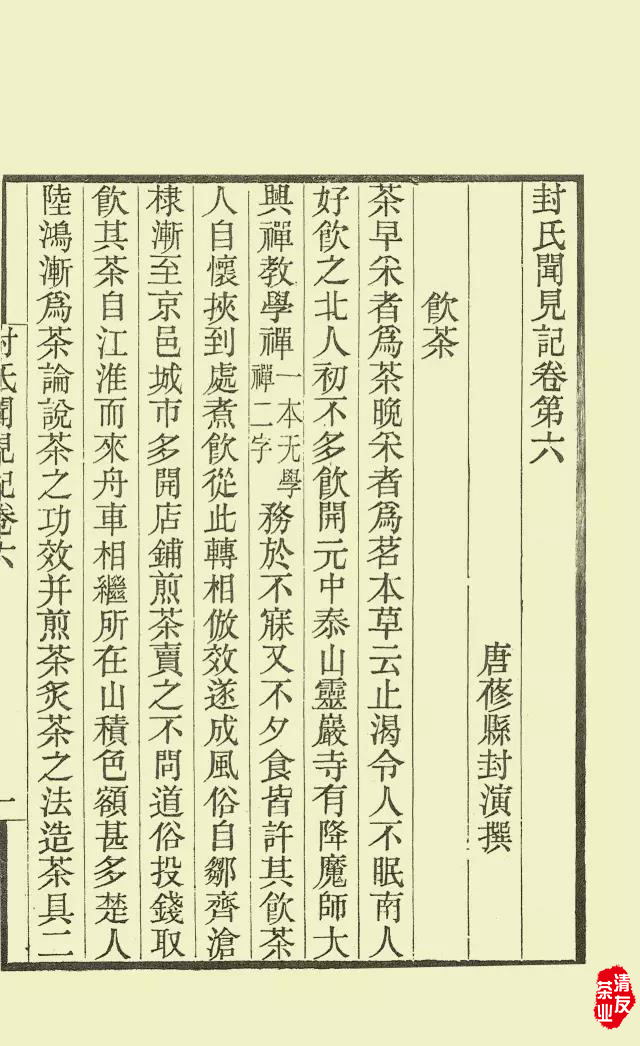 封氏聞見記卷第六
唐蓚縣封演撰
飲茶
茶早采者爲茶晚采者爲茗本草云止渴令人不眠南人
好飲之北人初不多飲開元中泰山靈巖寺有降魔師大
興禪教學禪一本无學禪二字務於不寐又不夕食皆許其飲茶
人自懷挾到處煮飲從此轉相倣效遂成風俗自鄒齊滄
棣漸至京邑城市多開店鋪煎茶賣之不問道俗投錢取
飲其茶自江淮而來舟車相繼所在山積色額甚多楚人
陸鴻漸爲茶論說茶之功效并煎茶炙茶之法造茶具二
封氏聞見記卷六
一
清友
茶业